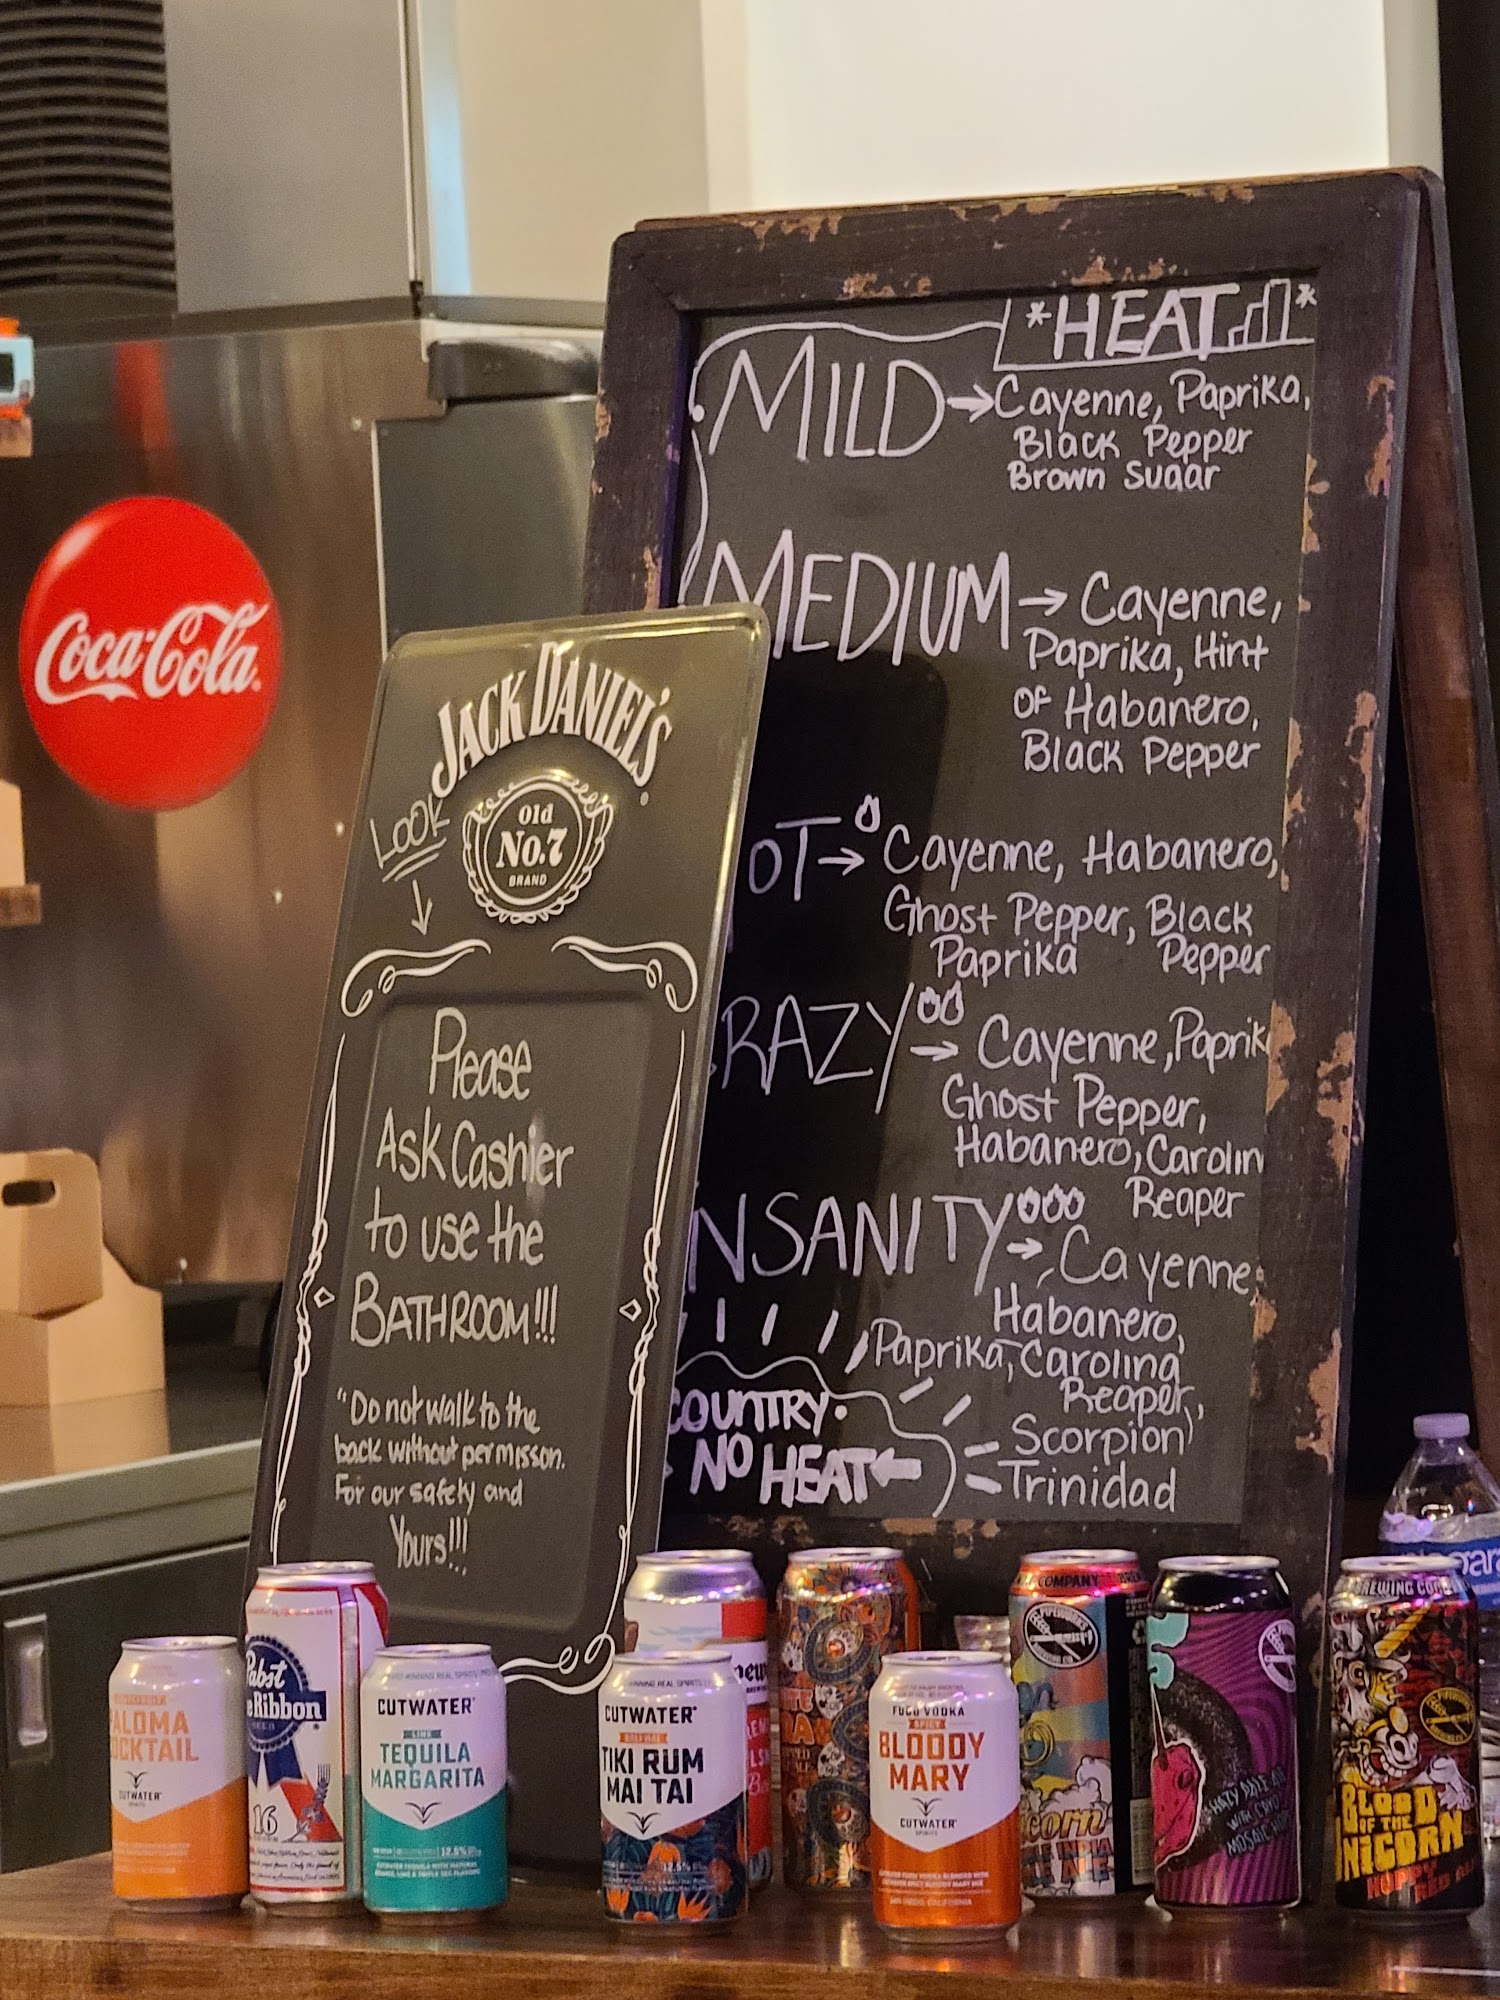 *HEAT*
MILD → Cayenne, Paprika,
Black Pepper
Brown Sugar
MEDIUM → Cayenne,
Paprika, Hint
of Habanero,
Black Pepper
OT → Cayenne, Habanero,
Ghost Pepper, Black
Paprika Pepper
RAZY → Cayenne, Paprik
Ghost Pepper,
Habanero, Carolin
Reaper
NSANITY → Cayenne
Habanero,
Paprika, Carolina
Reaper,
Scorpion
Trinidad
COUNTRY
NO HEAT ←
Coca-Cola
JACK DANIEL'S
Old
No.7
BRAND
LOOK
Please
Ask Cashier
to use the
BATHROOM!!!
"Do not walk to the
back without permisson.
For our safety and
Yours!!!
ALOMA
OCKTAIL
CUTWATER
SPIRITS
Pabst
e Ribbon
BEER
16
CUTWATER
LIME
TEQUILA
MARGARITA
12.5%
CUTWATER
TIKI RUM
MAI TAI
12.5%
FUGU VODKA
SPICY
BLOODY
MARY
CUTWATER
SPIRITS
COMPANY
corn
ALE
HAZY PALE ALE
WITH CRYO
MOSAIC HOPS
BREWING CO
BLOOD
OF THE
UNICORN
HOPPY
RED ALE